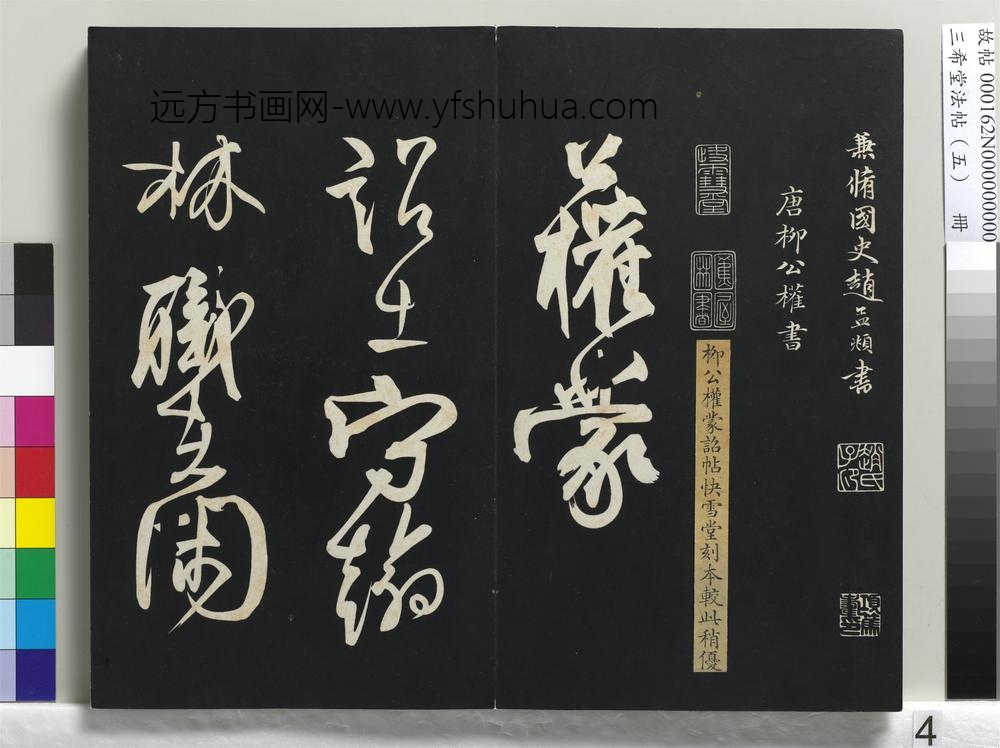 远方书画网-www.yfshuhua.com
故帖 000162N000000000
三希堂法帖（五） 冊
兼脩國史趙孟頫書
趙氏子印
唐柳公權書
蕉林書屋
柳公權蒙詔帖快雪堂刻本較此稍優
公權蒙
詔出守翰
林職在閑
4